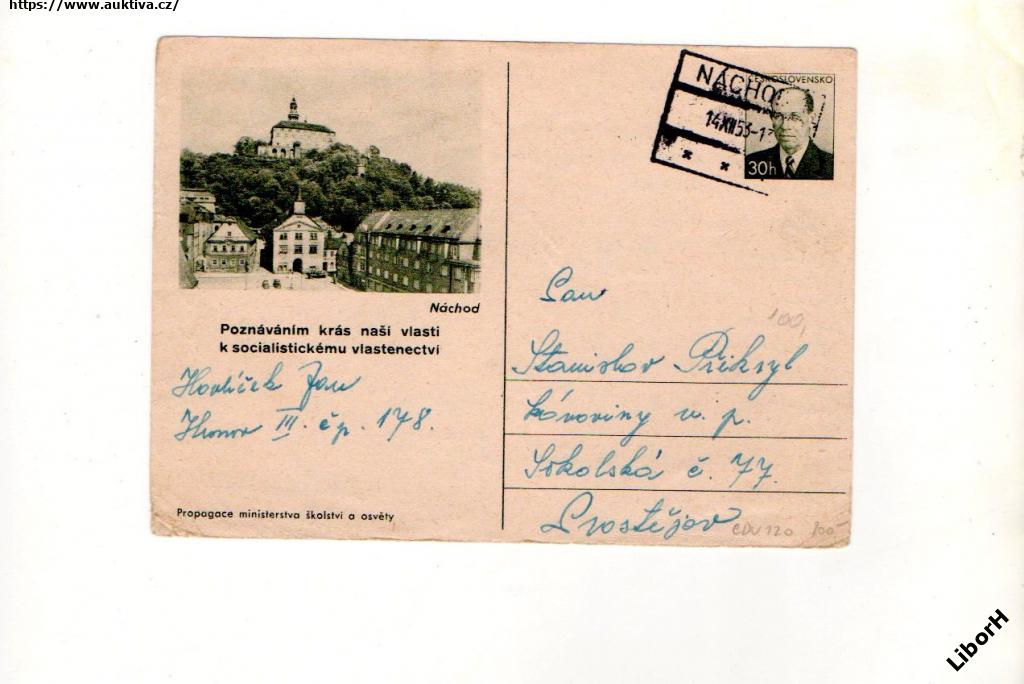 https://www.auktiva.cz/
NÁCHOD
14XII53-1
ČESKOSLOVENSKO
30h
Náchod
Poznáváním krás naší vlasti
k socialistickému vlastenectví
Havlíček Jan
Hronov III. čp. 178.
Propagace ministerstva školství a osvěty
Pan
100,
Stanislav Přikryl
n. p.
Sokolská č. 77.
Prostějov
CDV 120 100,-
LiborH